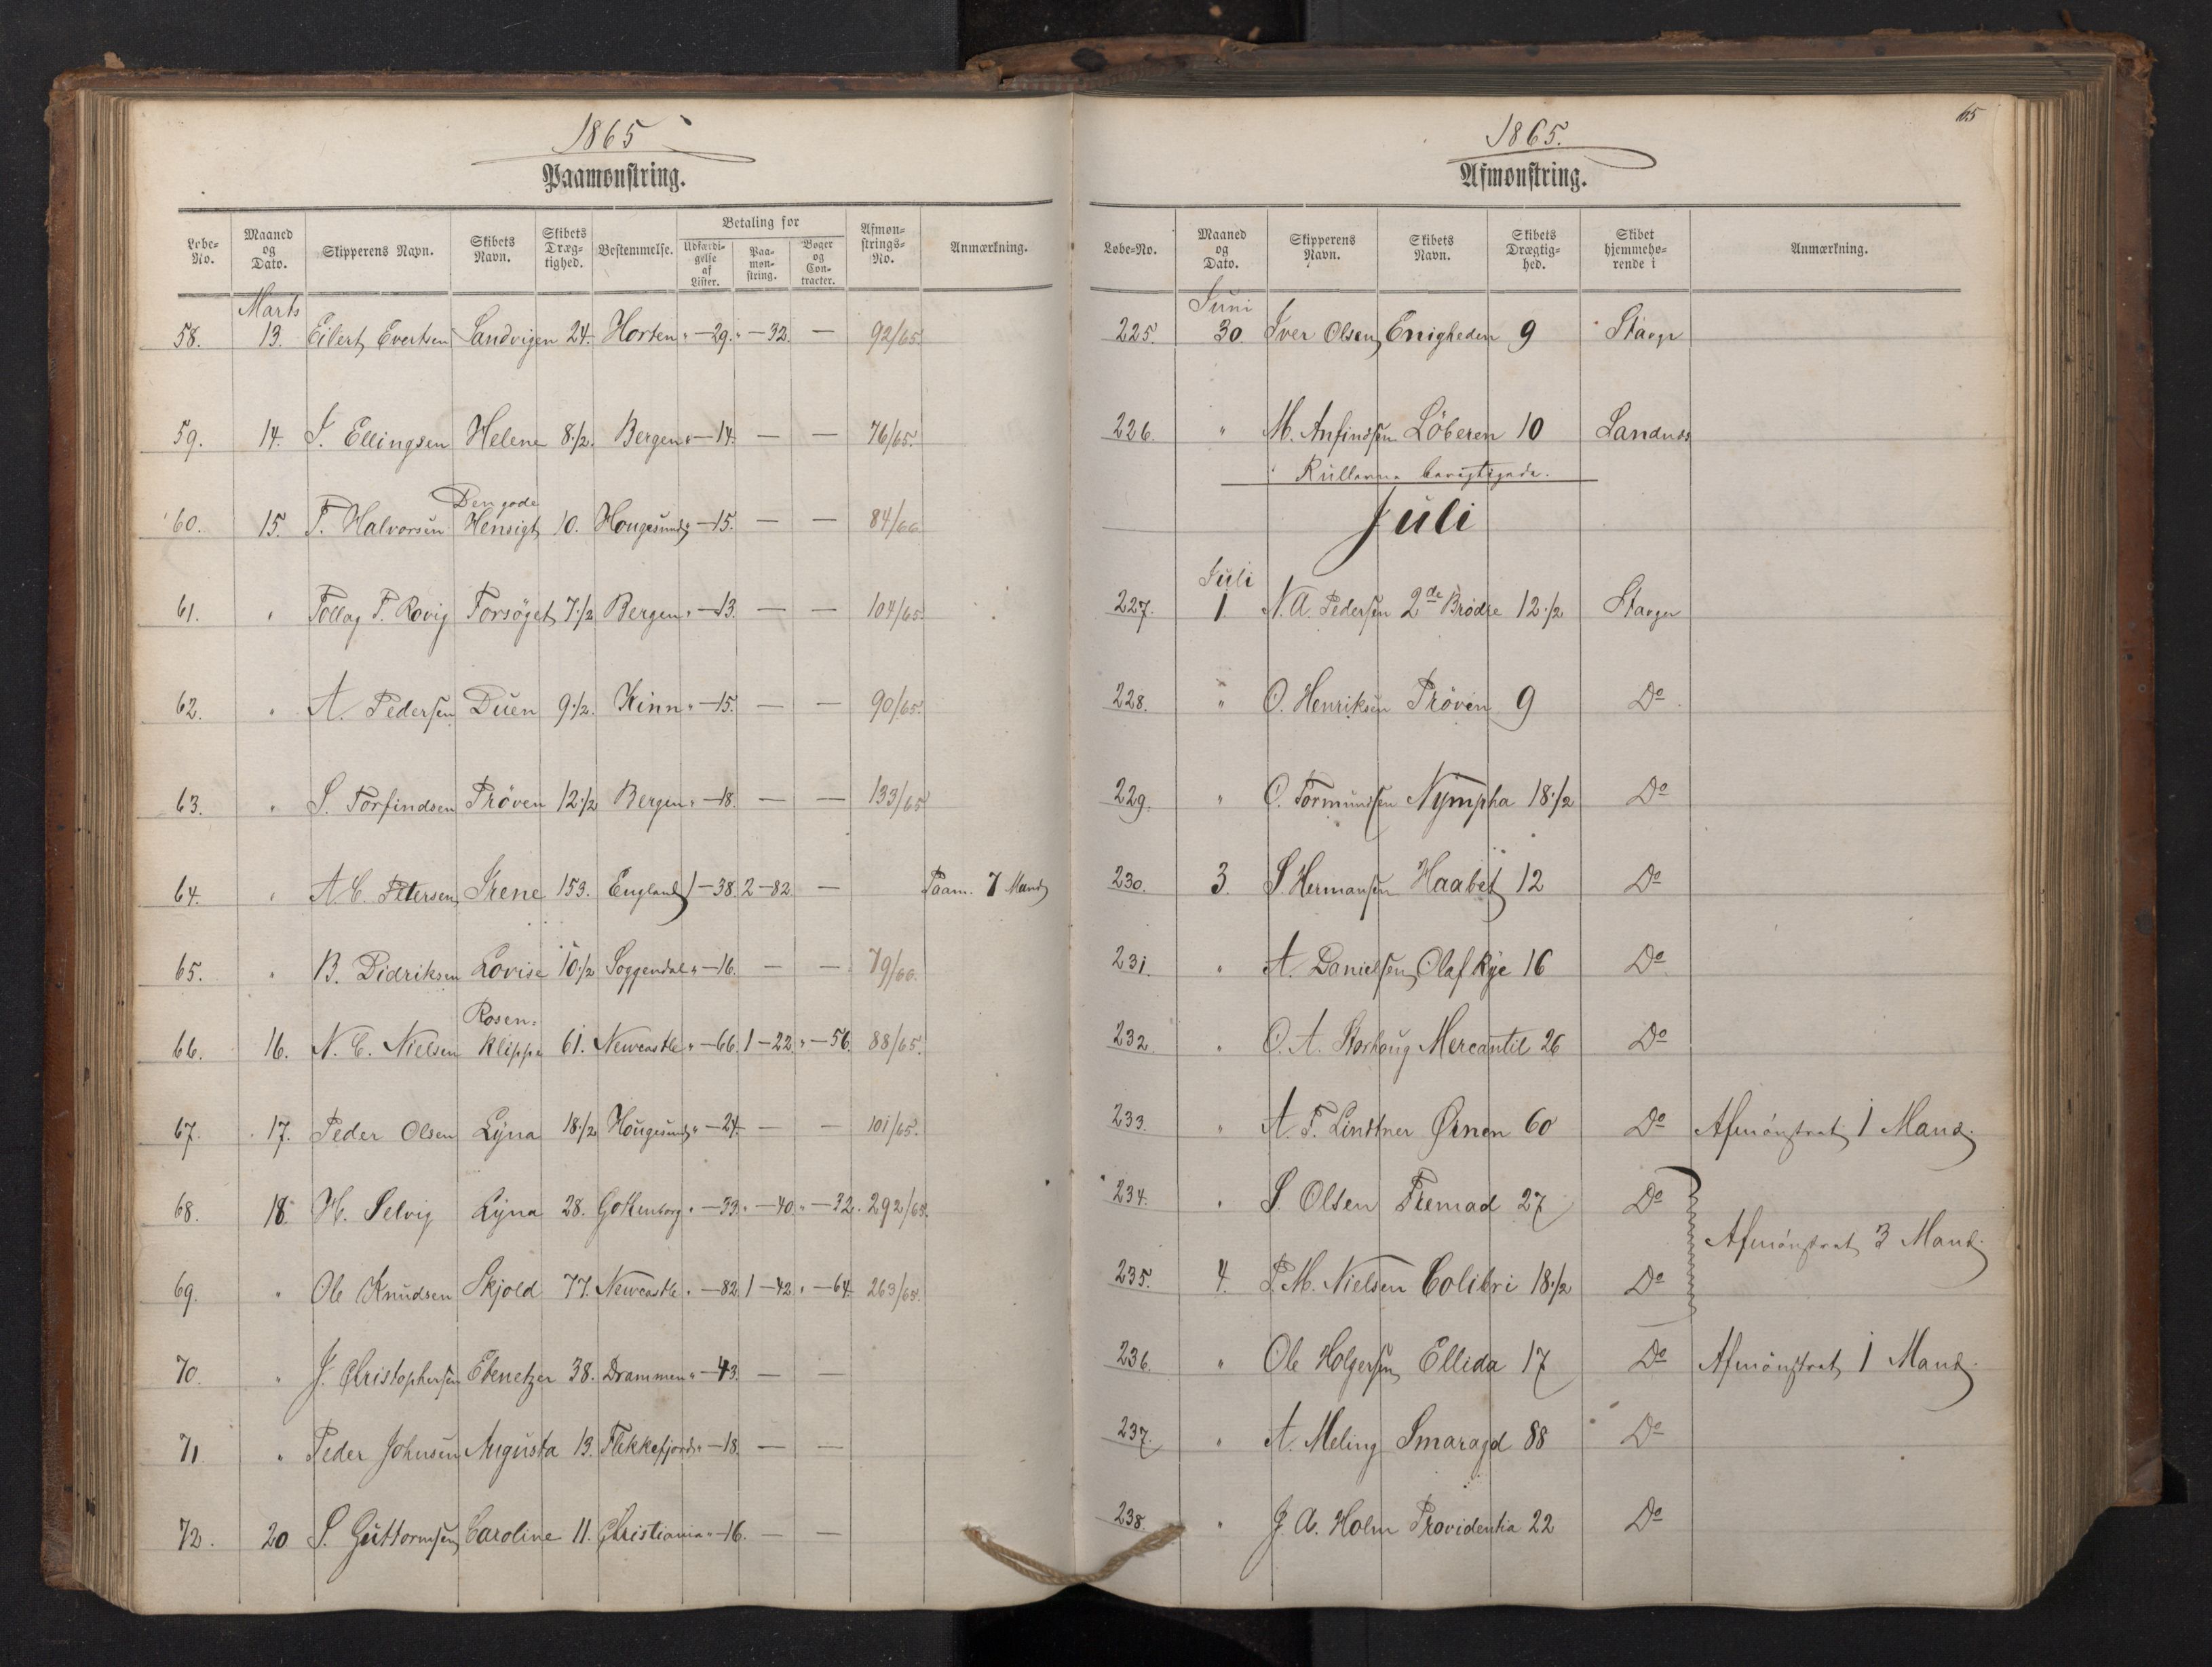 1865
Paamønstring.
Løbe-No. Maaned og Dato. Skipperens Navn. Skibets Navn. Skibets Dræg-tighed. Bestemmelse. Betaling for Udfærdi-gelse af Lister. Paa-møn-string. Bøger og Con-tracter. Afmøn-strings-No. Anmærkning.
Marts
58. 13. Eilert Evertsen Sandvigen 24. Horten " — 29. " — 32. — 92/65
59. 14. J. Ellingsen Helene 8 1/2. Bergen " — 14. — — 76/65.
Den gode
60. 15. T. Halvorsen Hensigt 10. Hougesund " — 15. — — 84/66
61. " Tollag T. Rovig Forsøget 7 1/2 Bergen " — 13. — — 104/65.
62. " A. Pedersen Duen 9 1/2. Kinn " — 15. — — 90/65.
63. " S. Torfindsen Prøven 12 1/2 Bergen " — 18. — — 133/65
64. " A. C. Petersen Irene 153. England 1 — 38. 2 — 82 — Paam. 7 Mand
65. " B. Didriksen Lovise 10 1/2 Soggendal " — 16. — — 79/66.
Rosen-
66. 16. N. C. Nielsen klippe 61. Newcastle " — 66. 1 — 22. " — 56. 88/65.
67. 17. Peder Olsen Lyna 18 1/2 Hougesund " — 24. — — 101/65.
68. 18. H. Selvig Lyna 28. Gottenborg " — 33. " — 40. " — 32. 292/65.
69. " Ole Knudsen Skjold 77. Newcastle " — 82 1 — 42. " — 64. 263/65.
70. " J. Christophersen Ebenetzer 38. Drammen " — 43. — —
71 " Peder Johnsen Augusta 13. Flekkefjord " — 18. — —
72. 20 S. Guttormsen Caroline 11. Christiania " — 16. — —
65
1865.
Afmønstring.
Løbe-No. Maaned og Dato. Skipperens Navn. Skibets Navn. Skibets Drægtig-hed. Skibet hjemmehø-rende i Anmærkning.
Juni
225. 30 Iver Olsen Enigheden 9 Stavgr
226. " M. Anfindsen Löberen 10 Sandnds
Rullerne berigtigede.
Juli
Juli
227. 1. N. A. Pedersen 2de Brødre 12 1/2 Stavger
228. " O. Henriksen Prøven 9 Do
229. " O. Tormundsen Nympha 18 1/2 Do
230. 3. S. Hermansen Haabet 12 Do
231. " A. Danielsen Olaf Rye 16 Do
232. " O. A. Storhoug Mercantil 26 Do
233. " A. F. Lindtner Ørnen 60 Do Afmønstret 1 Mand.
234. " S. Olsen Fremad 27 Do
Afmønstret 3 Mand.
235. 4. P. M. Nielsen Colibri 18 1/2 Do
236. " Ole Holgersen Ellida 17 Do Afmønstret 1 Mand.
237. " A. Meling Smaragd 88 Do
238. " J. A. Holm Providentia 22 Do